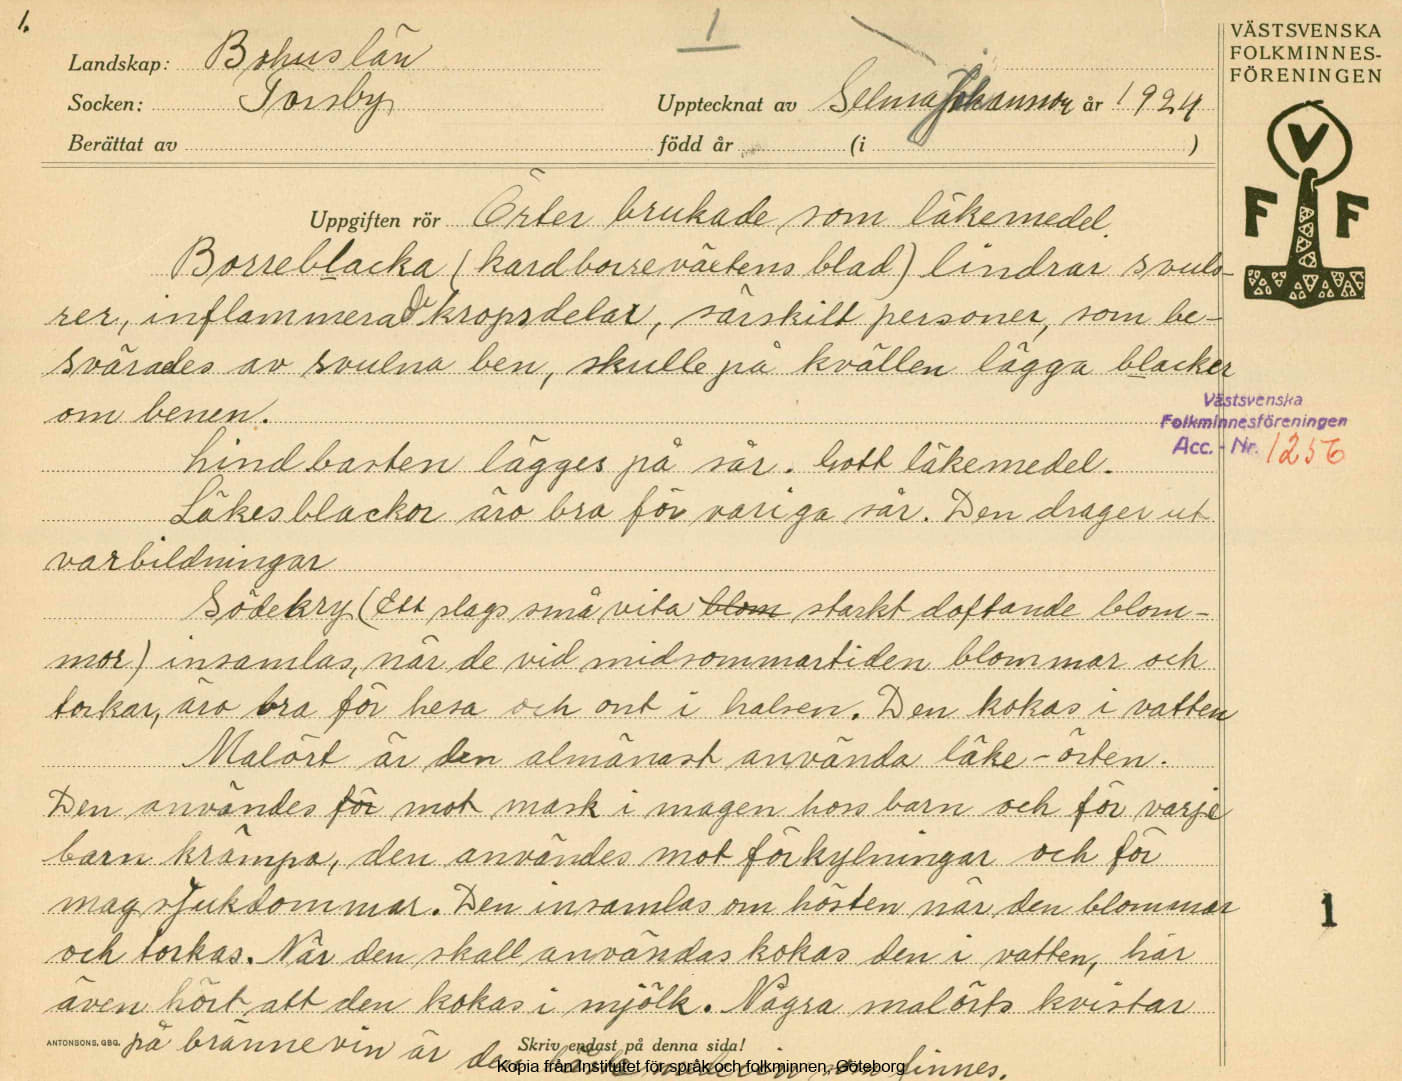 1.
1
VÄSTSVENSKA
FOLKMINNES-
FÖRENINGEN
V
F F
Landskap: Bohuslän
Socken: Torsby
Upptecknat av Selma Johansson år 1924
Berättat av
född år (i )
Uppgiften rör Örter brukade som läkemedel.
Borreblacka (kardborreväxtens blad) lindrar svuls-
rer, inflammerade kropsdelar, särskilt personer, som be-
svärades av svulna ben, skulle på kvällen lägga blacker
om benen.
Västsvenska
Folkminnesföreningen
Acc. - Nr. 1256
Lindbasten lägges på sår. Gott läkemedel.
Läkesblackor äro bra för variga sår. Den drager ut
varbildningar
Södekry (Ett slags små vita blom starkt doftande blom-
mor) insamlas, när de vid midsommartiden blommar och
torkar, äro bra för hesa och ont i halsen. Den kokas i vatten
Malört är den almänast använda läke-örten.
Den användes för mot mask i magen hos barn och för varje
barn krämpa, den användes mot förkylningar och för
magsjukdommar. Den insamlas om hösten när den blommar
och torkas. När den skall användas kokas den i vatten, har
även hört att den kokas i mjölk. Några malörts kvistar
på brännevin är den som finnes.
1
ANTONSONS, GBG.
Skriv endast på denna sida!
Kopia från Institutet för språk och folkminnen, Göteborg